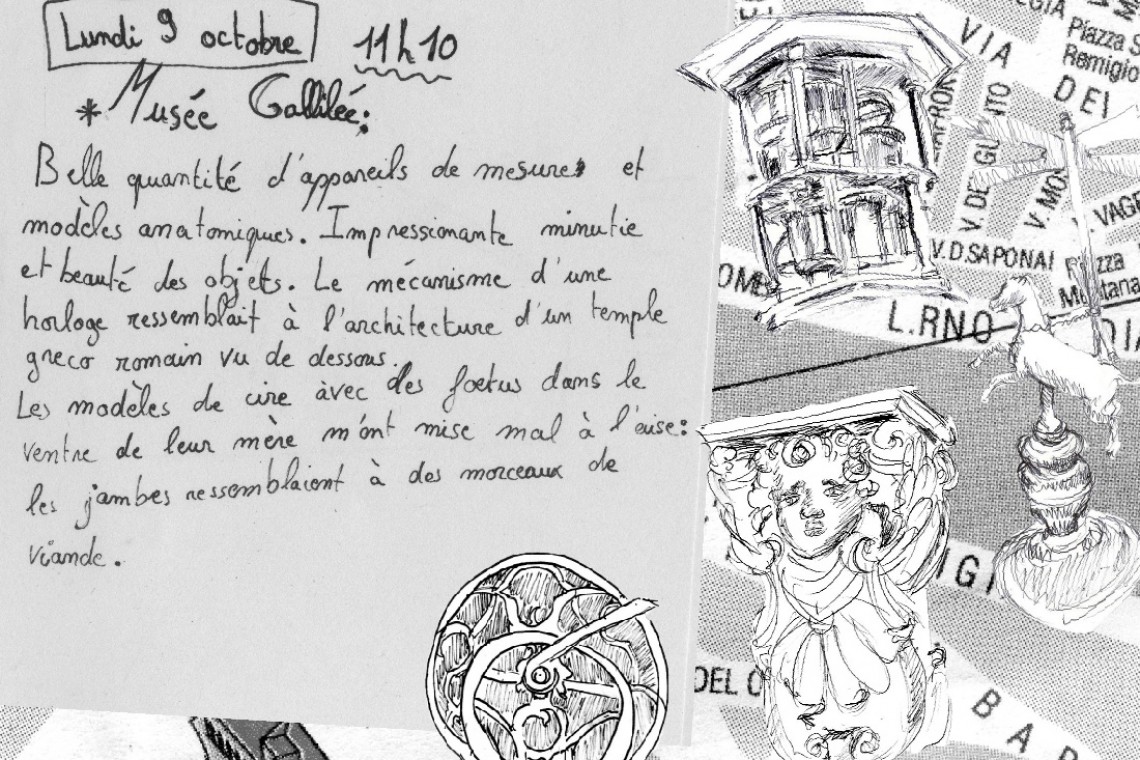 Lundi 9 octobre 11h10
* Musée Gallilée:
Belle quantité d'appareils de mesures et
modèles anatomiques. Impressionante minutie
et beauté des objets. Le mécanisme d'une
horloge ressemblait à l'architecture d'un temple
greco romain vu de dessous.
Les modèles de cire àvec des foetus dans le
ventre de leur mère m'ont mise mal à l'aise:
les jambes ressemblaient à des morceaux de
viande.
Piazza S
Remigio
VIA
DEI
V. MOS
VAGE
V.D.SAPONAI
L.RNO
IGI
DEL
BAR